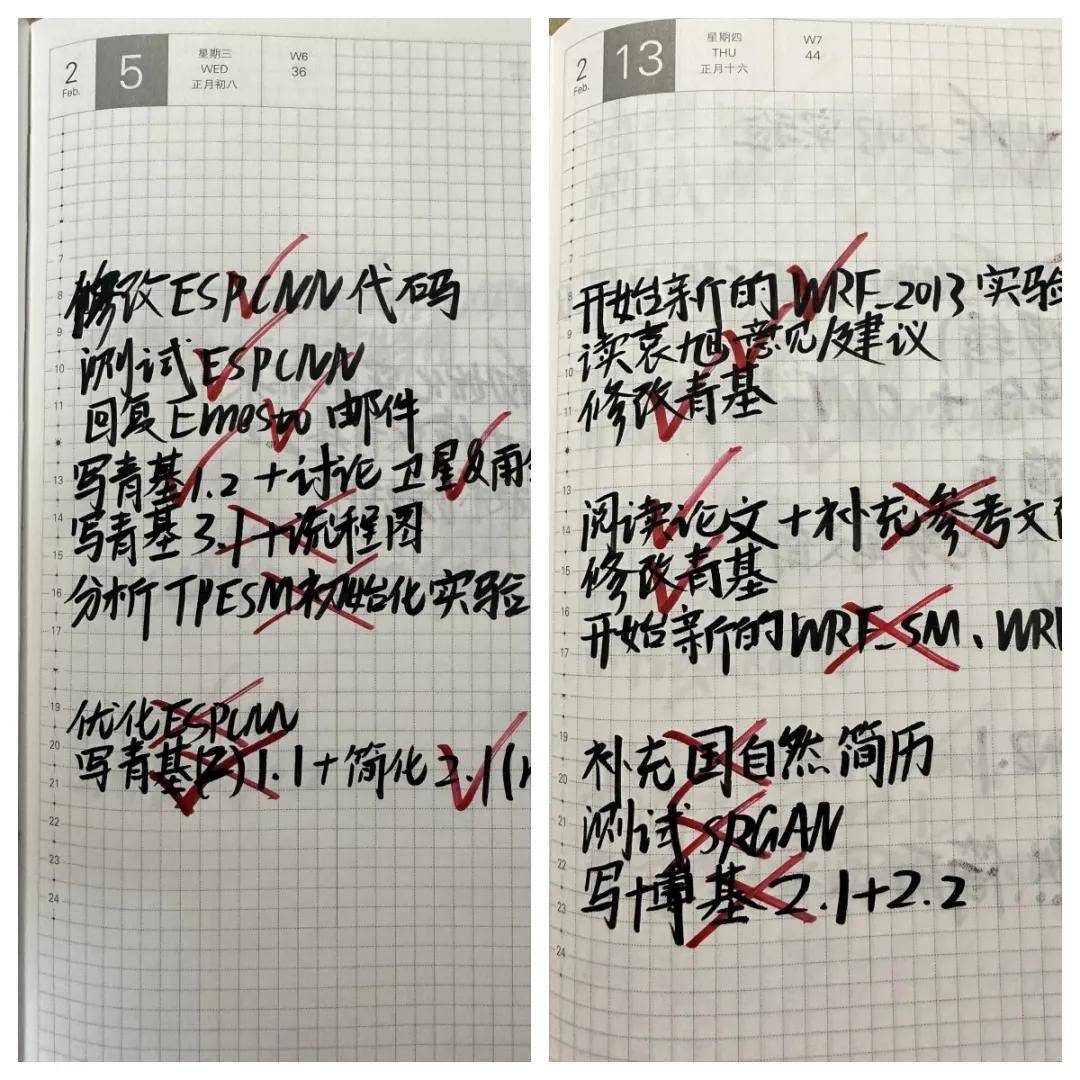 2
Feb.
5
星期三
WED
正月初八
W6
36
7
8
9
10
11
12
13
14
15
16
17
18
19
20
21
22
23
24
修改ESPCNN代码
测试ESPCNN
回复Ernesto邮件
写青基1.2+讨论卫星&雨
写青基3.1+流程图
分析TPESM初始化实验
优化ESPCNN
写青基(2)1.1+简化2.1(
2
Feb.
13
星期四
THU
正月十六
W7
44
7
8
9
10
11
12
13
14
15
16
17
18
19
20
21
22
23
24
开始新的WRF_2013实验
读袁旭意见/建议
修改青基
阅读论文+补充参考文
修改青基
开始新的WRF_SM、WRF
补充国自然简历
测试SRGAN
写博基2.1+2.2